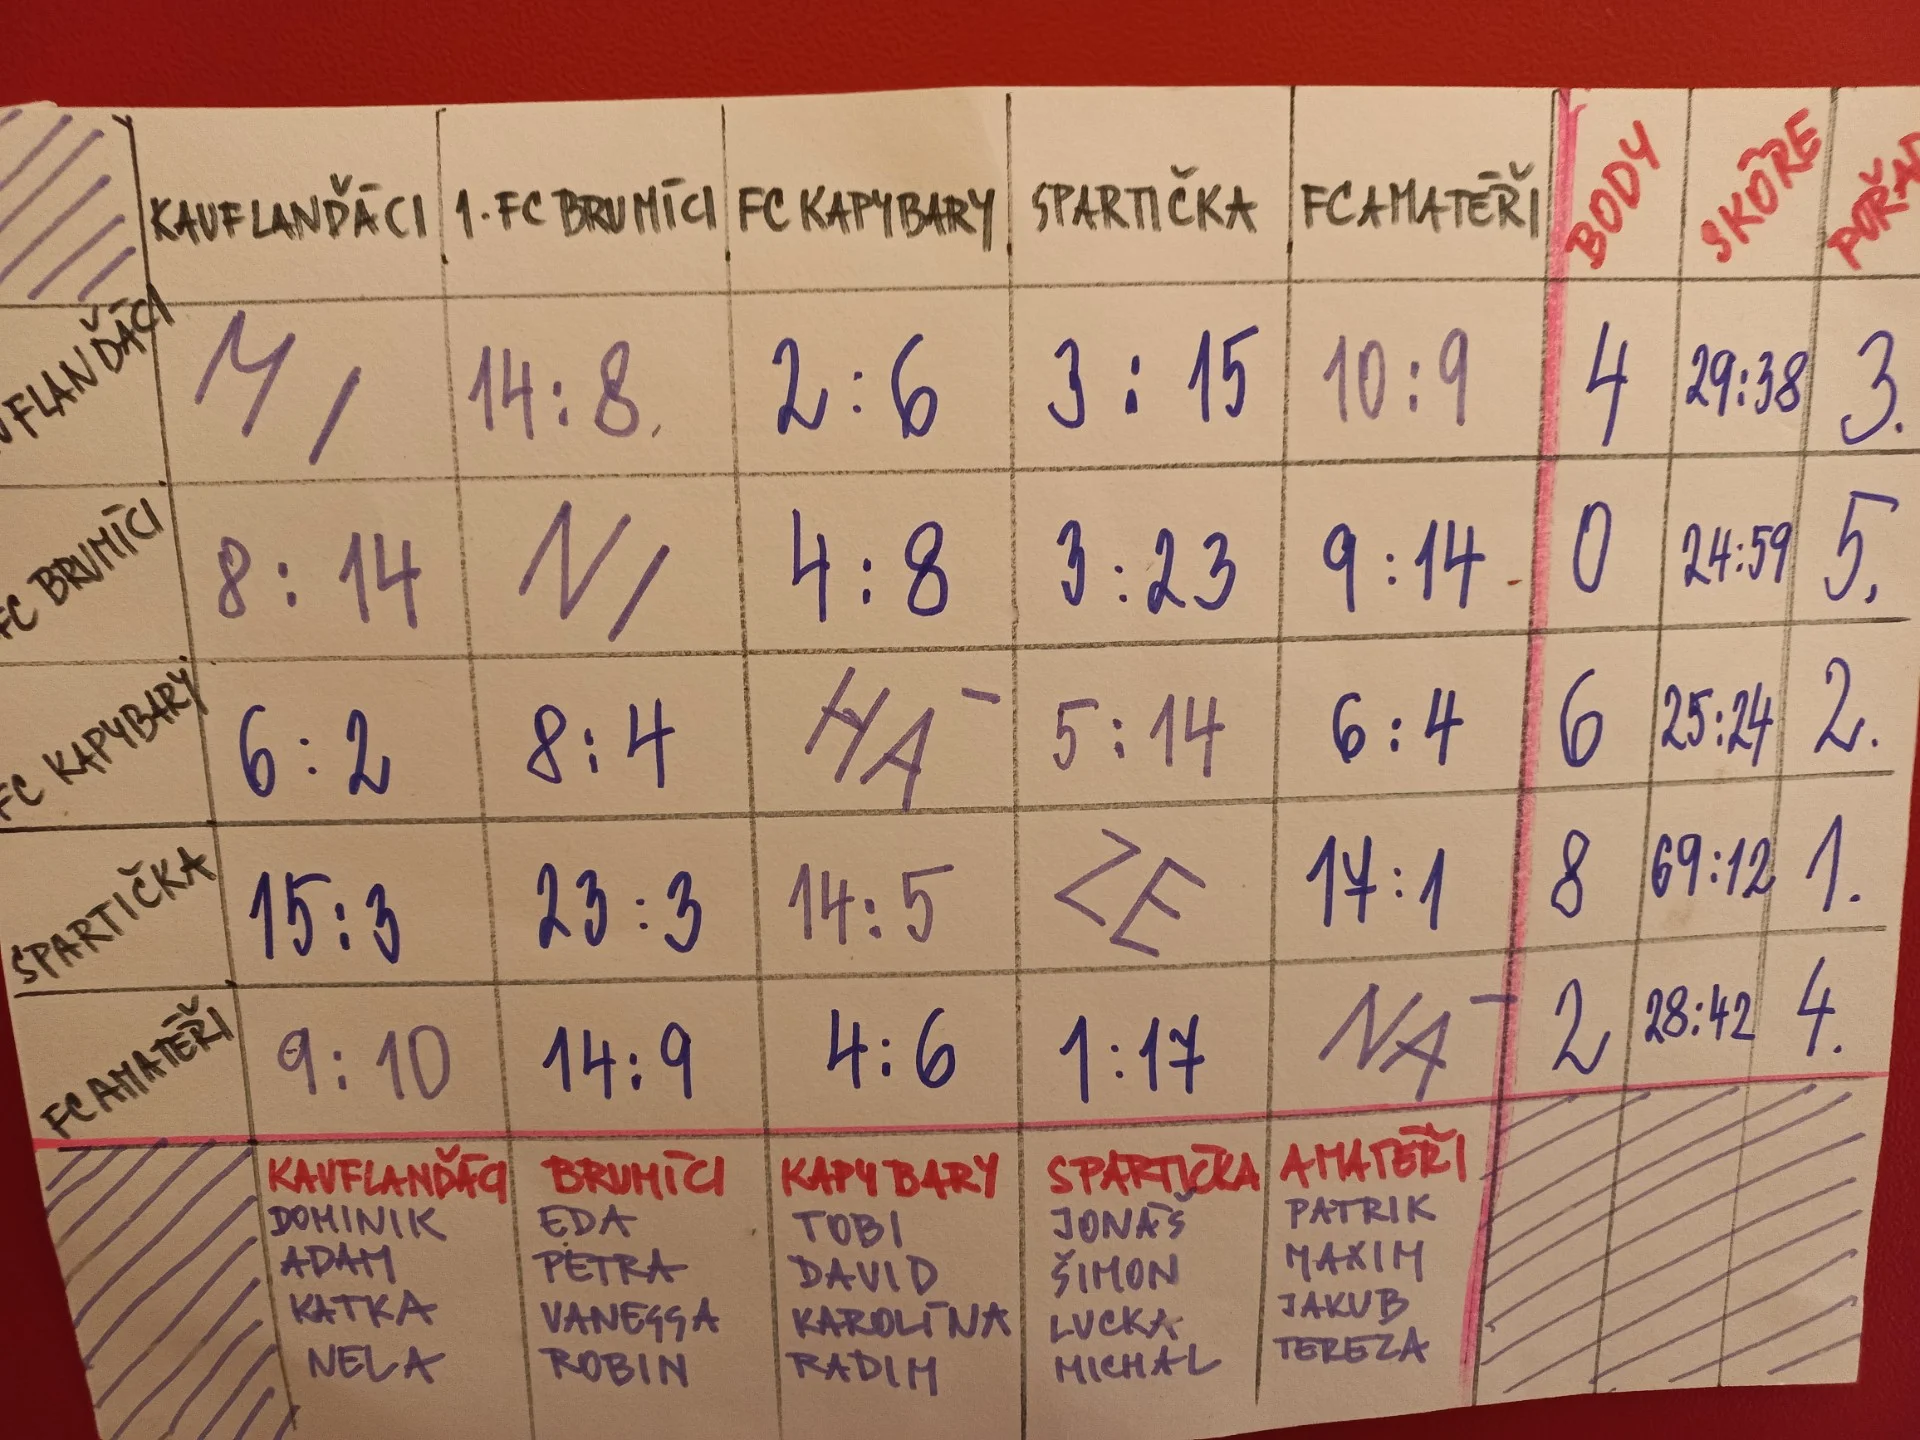 KAUFLANĎÁCI 1. FC BRUMÍCI FC KAPYBARY SPARTIČKA FC AMATÉŘI BODY SKÓRE POŘAD
UFLANĎÁCI M / 14:8 2:6 3:15 10:9 4 29:38 3.
FC BRUMÍCI 8:14 N / 4:8 3:23 9:14 0 24:59 5.
FC KAPYBARY 6:2 8:4 HA- 5:14 6:4 6 25:24 2.
SPARTIČKA 15:3 23:3 14:5 ZE 17:1 8 69:12 1.
FC AMATÉŘI 9:10 14:9 4:6 1:17 NA- 2 28:42 4.
KAUFLANĎÁCI BRUMÍCI KAPYBARY SPARTIČKA AMATÉŘI
DOMINIK EDA TOBI JONÁŠ PATRIK
ADAM PETRA DAVID ŠIMON MAXIM
KATKA VANESSA KAROLÍNA LUCKA JAKUB
NELA ROBIN RADIM MICHAL TEREZA